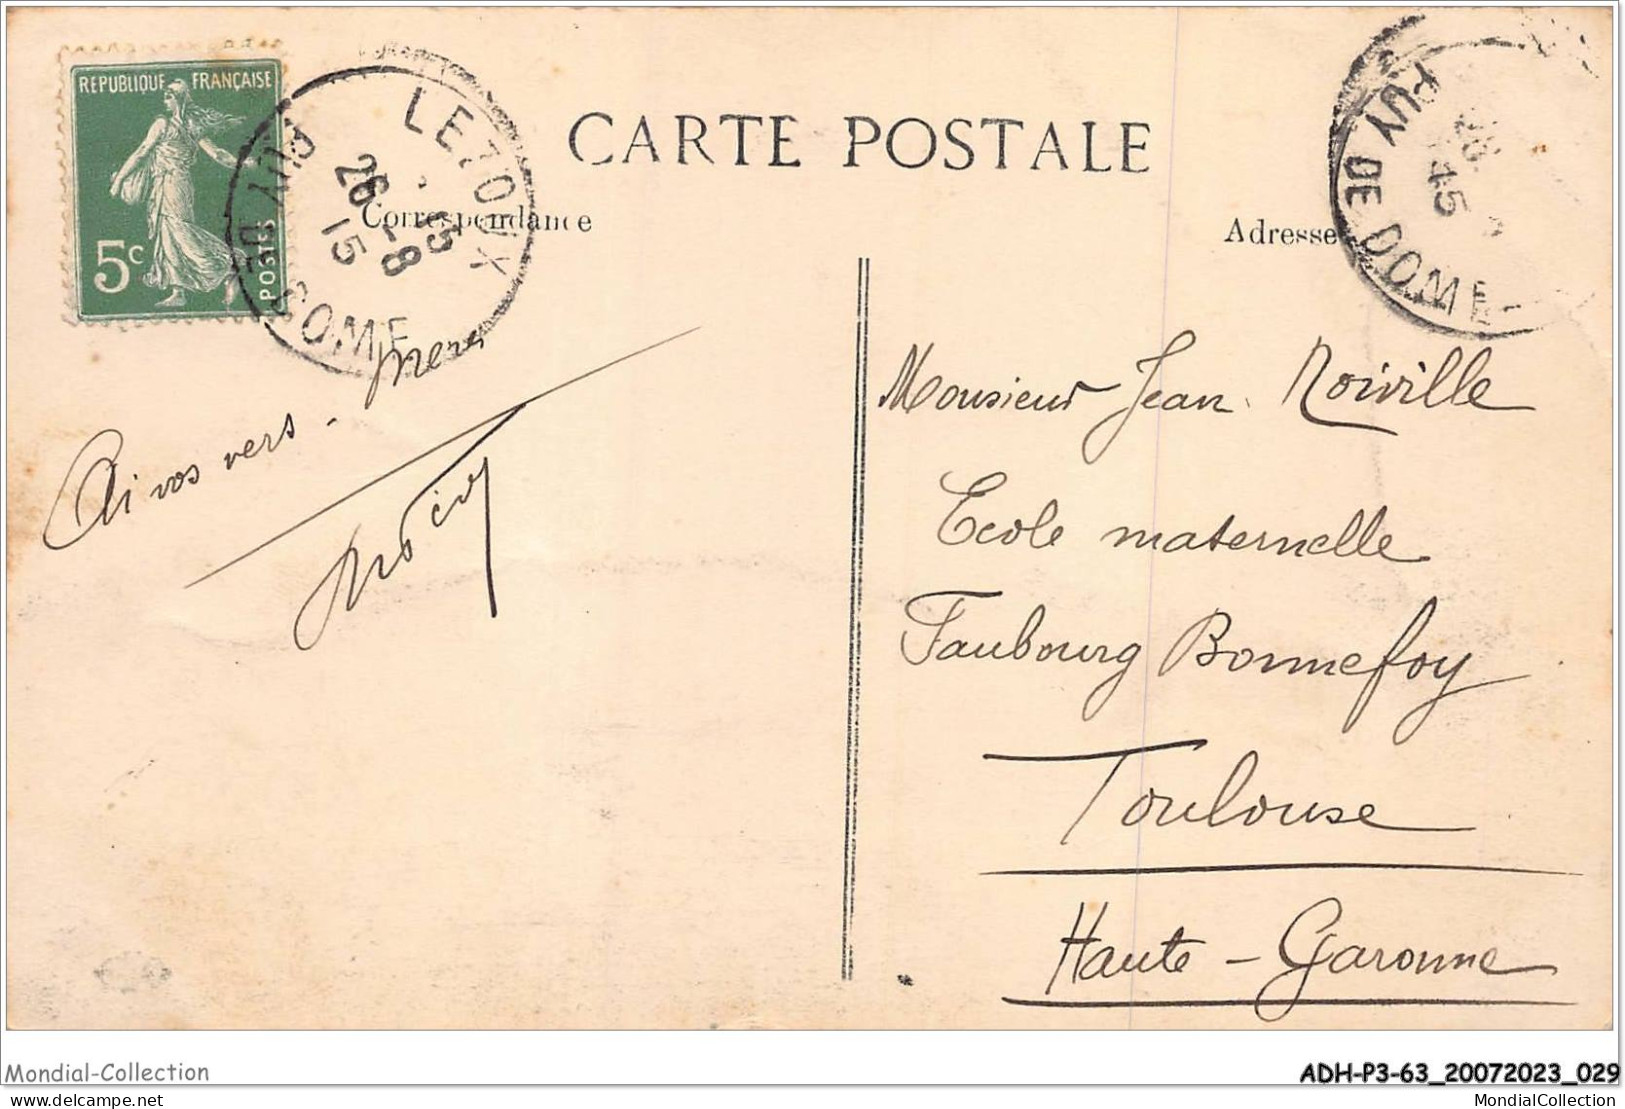 REPUBLIQUE FRANÇAISE
5c
POSTES
LEZOUX
26-8
15
PUY DE DOME
CARTE POSTALE
Correspondance
Adresse
PUY DE DOME
45
Ai vos vers. Merci
Monsieur Jean Noiville
Ecole maternelle
Faubourg Bonnefoy
Toulouse
Haute-Garonne
Mondial-Collection
ADH-P3-63_20072023_029
delcampe.net
MondialCollection